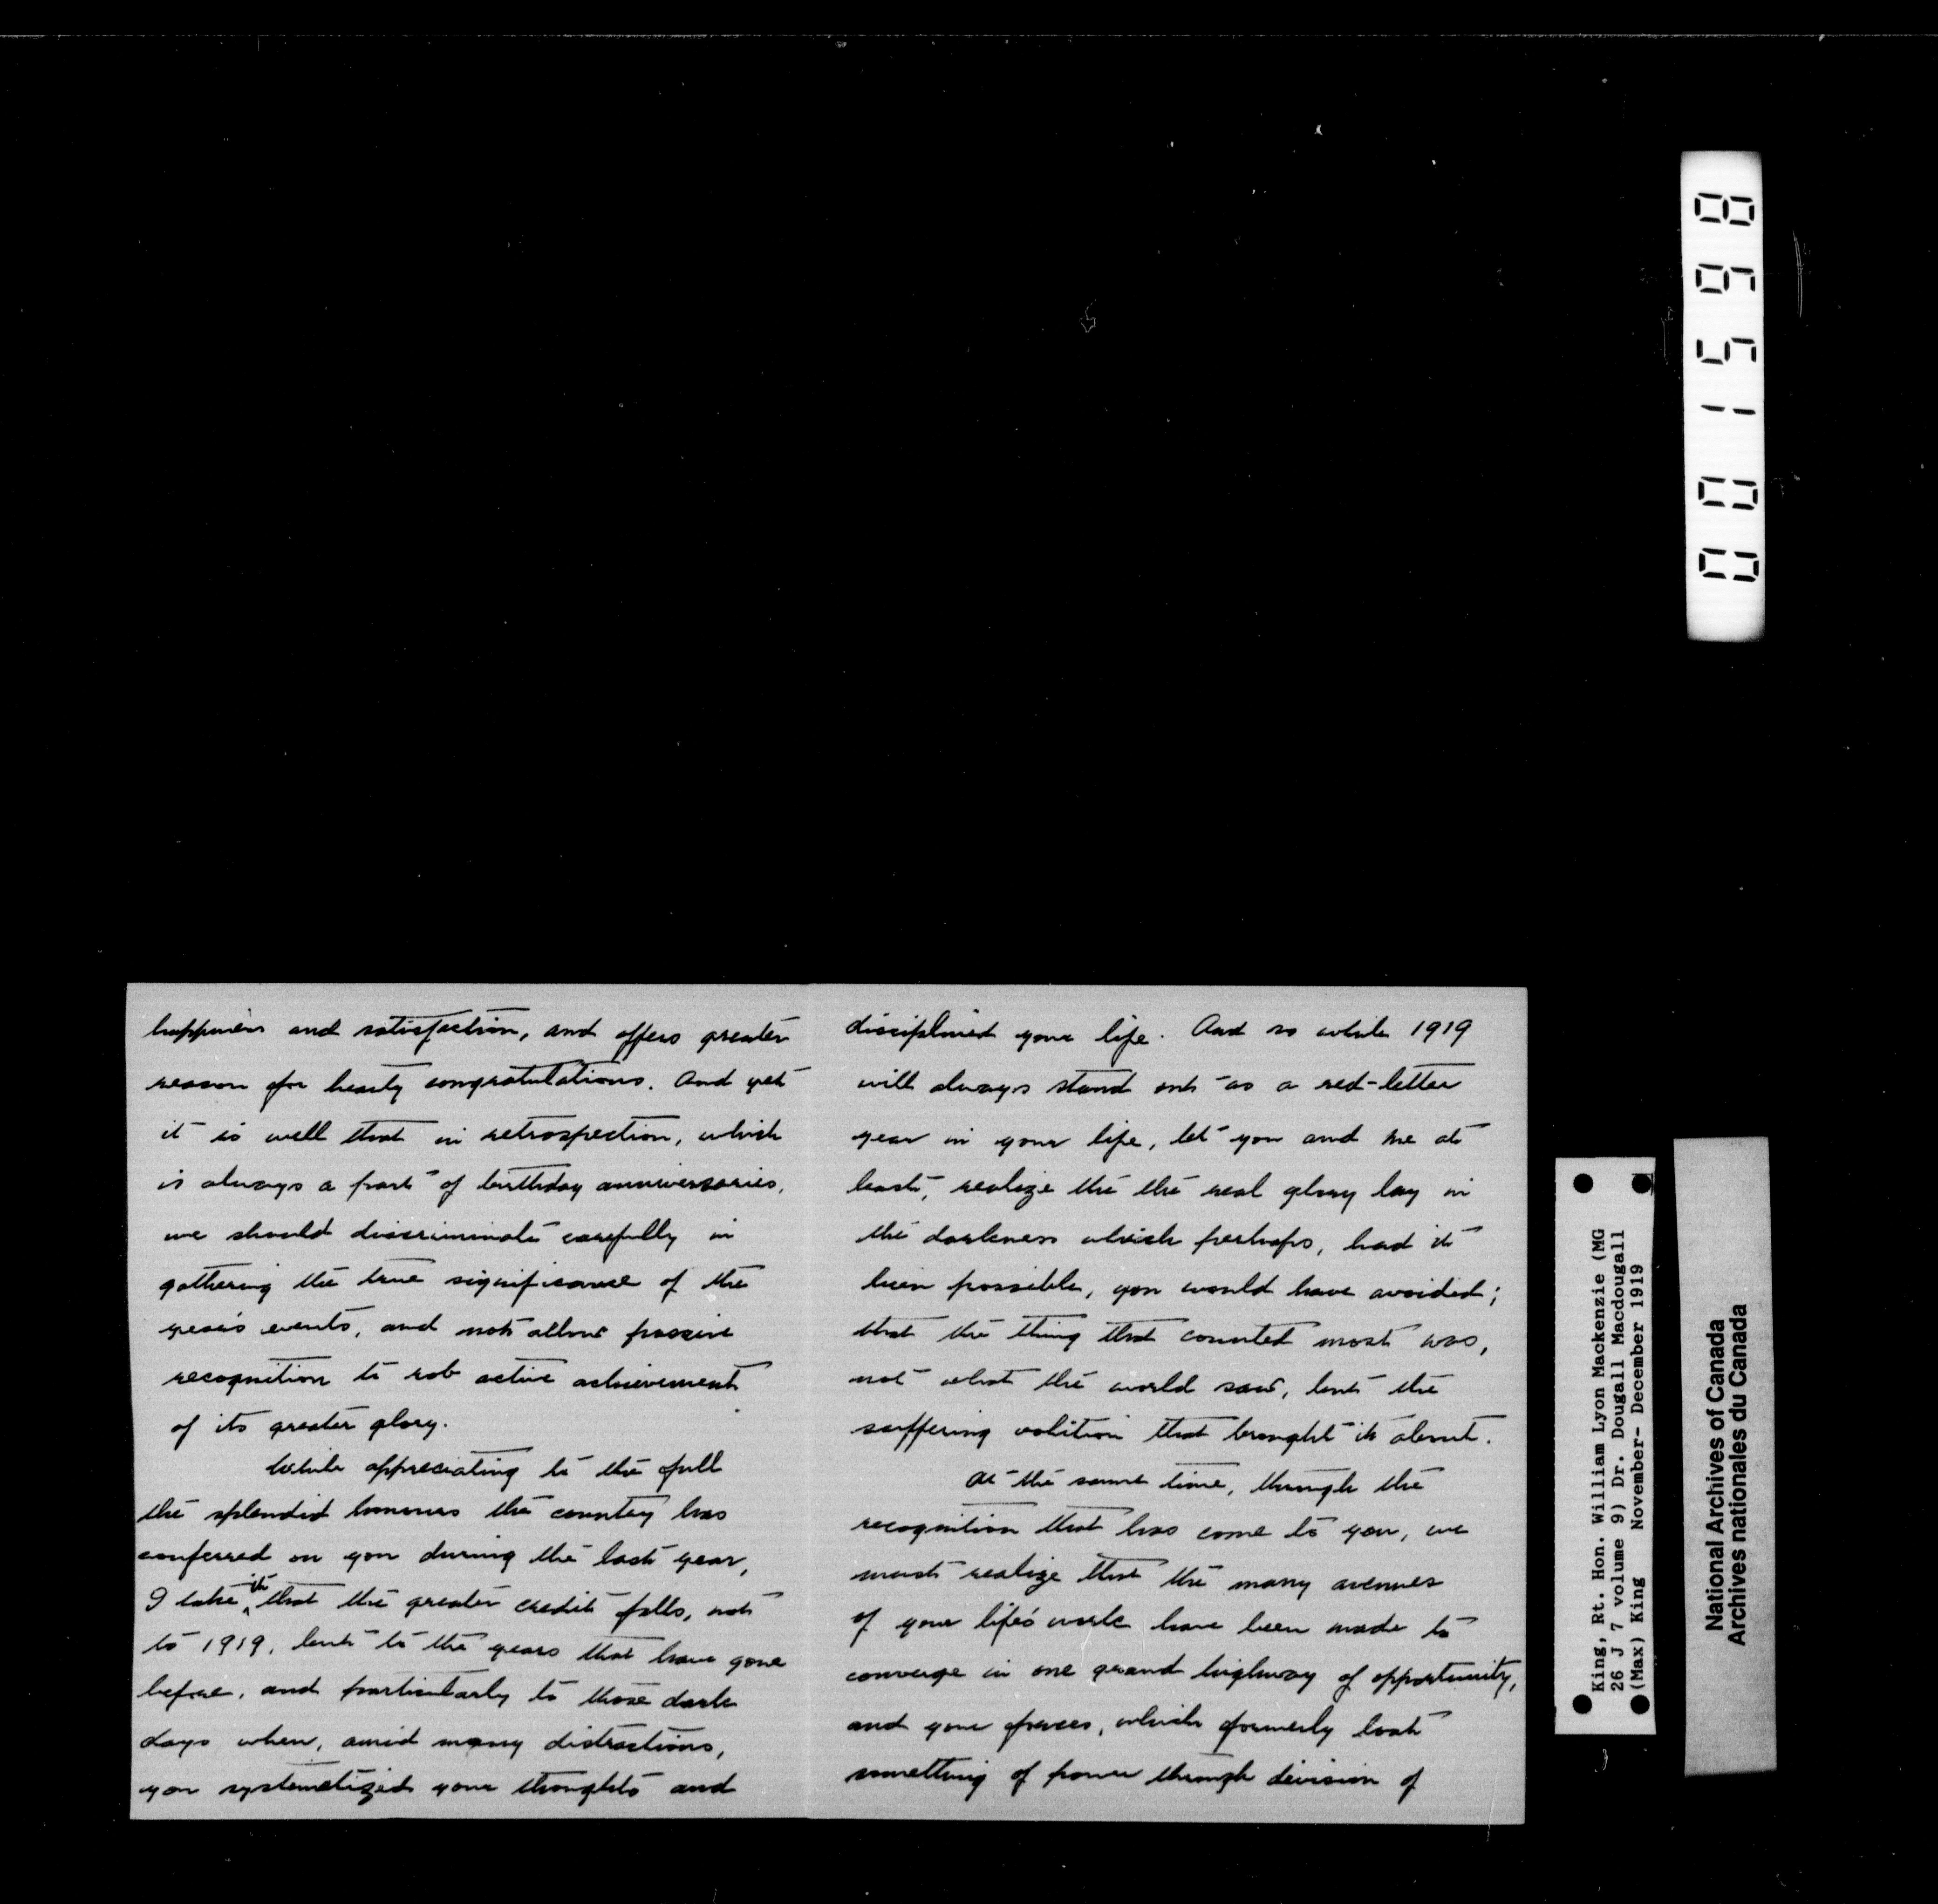 happiness and satisfaction, and offers greater
reason for hearty congratulations. And yet
it is well that in retrospection, which
is always a part of birthday anniversaries,
we should discriminate carefully in
gathering the true significance of the
year's events, and not allow passive
recognition to rob active achievement
of its greater glory.
While appreciating to the full
the splendid honours the country has
conferred on you during the last year,
I take it that the greater credit falls, not
to 1919, but to the years that have gone
before, and particularly to those dark
days when, amid many distractions,
you systematized your thoughts and
disciplined your life. And so while 1919
will always stand out as a red-letter
year in your life, let you and me at
least, realize the the real glory lay in
the darkness which perhaps, had it
been possible, you would have avoided;
that the thing that counted most was,
not what the world saw, but the
suffering volition that brought it about.
At the same time, through the
recognition that has come to you, we
must realize that the many avenues
of your life's work have been made to
converge in one grand highway of opportunity,
and your forces, which formerly lost
something of power through division of
King, Rt. Hon. William Lyon Mackenzie (MG
26 J 7 volume 9) Dr. Dougall Macdougall
(Max) King November- December 1919
National Archives of Canada
Archives nationales du Canada
001598